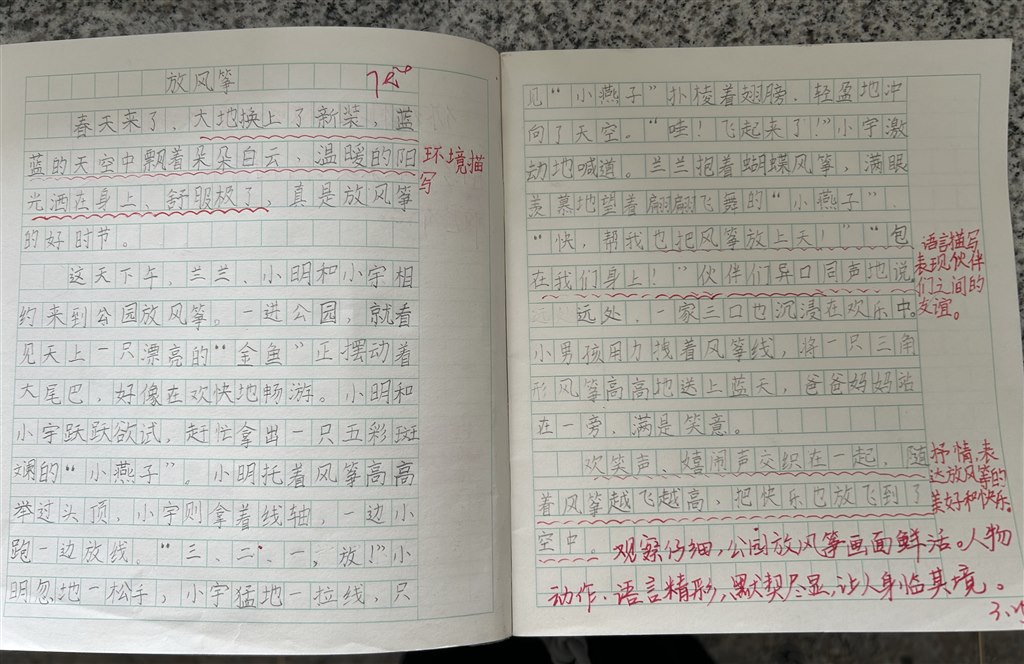 放风筝
春天来了，大地换上了新装，蓝
蓝的天空中飘着朵朵白云，温暖的阳
光洒在身上，舒服极了，真是放风筝
的好时节。
这天下午，兰兰、小明和小宇相
约来到公园放风筝。一进公园，就看
见天上一只漂亮的“金鱼”正摆动着
大尾巴，好像在欢快地畅游。小明和
小宇跃跃欲试，赶忙拿出一只五彩斑
斓的“小燕子”。小明托着风筝高高
举过头顶，小宇则拿着线轴，一边小
跑一边放线。“三、二、一，放！”小
明忽地一松手，小宇猛地一拉线，只
环境描
写
见“小燕子”扑棱着翅膀，轻盈地冲
向了天空。“哇！飞起来了！”小宇激
动地喊道。兰兰抱着蝴蝶风筝，满眼
羡慕地望着翩翩飞舞的“小燕子”，
“快，帮我也把风筝放上天！”“包
在我们身上！”伙伴们异口同声地说。
远处，一家三口也沉浸在欢乐中。
小男孩用力拽着风筝线，将一只三角
形风筝高高地送上蓝天，爸爸妈妈站
在一旁，满是笑意。
欢笑声、嬉闹声交织在一起，随
着风筝越飞越高，把快乐也放飞到了
空中。
语言描写
表现伙伴
们之间的
友谊。
抒情，表
达放风筝的
美好和快乐。
观察仔细，公园放风筝画面鲜活。人物
动作、语言精彩，默契尽显，让人身临其境。